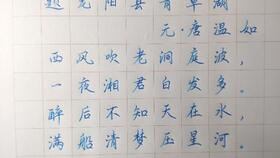 题龙阳县青草湖
元·唐温如
西风吹老洞庭波，
一夜湘君白发多。
醉后不知天在水，
满船清梦压星河。